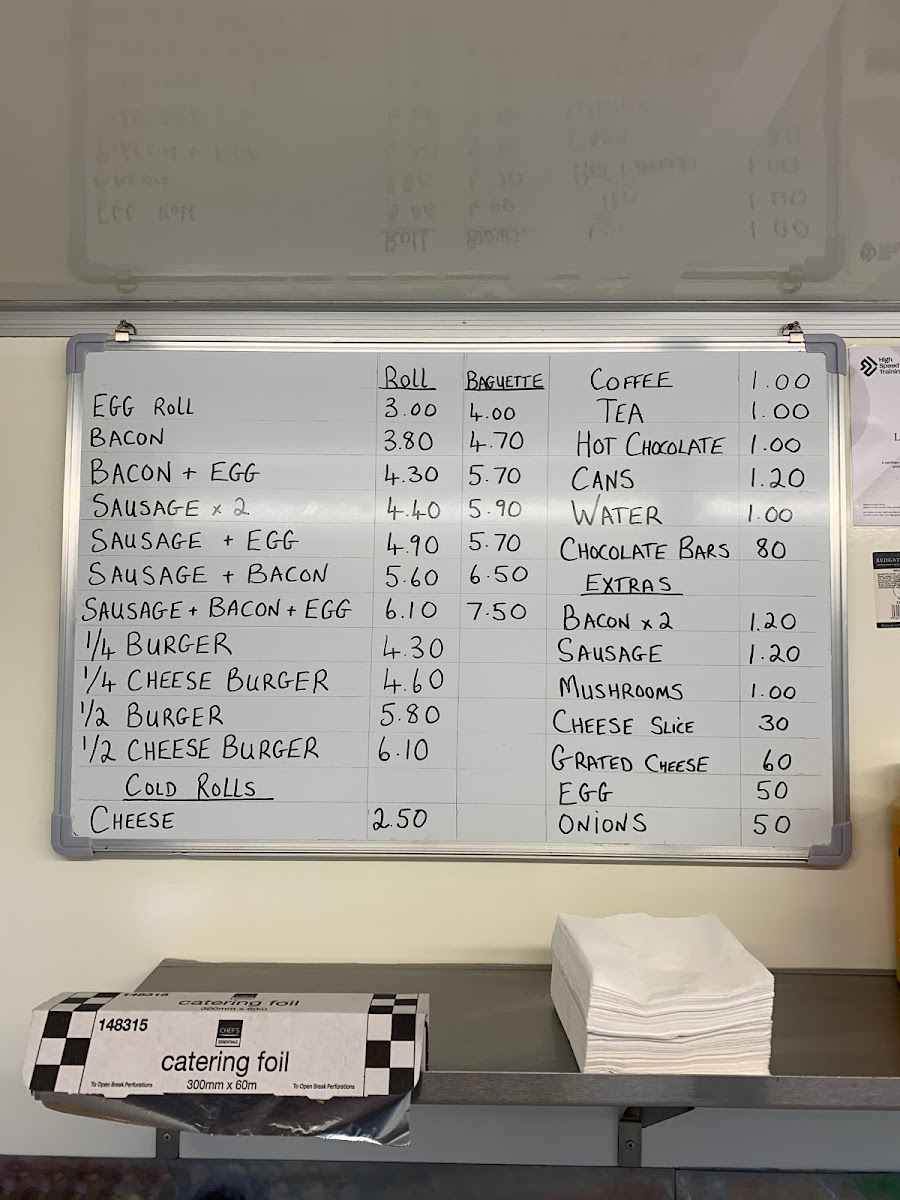 Roll BAGUETTE
EGG ROLL 3.00 4.00
BACON 3.80 4.70
BACON + EGG 4.30 5.70
SAUSAGE x 2 4.40 5.90
SAUSAGE + EGG 4.90 5.70
SAUSAGE + BACON 5.60 6.50
SAUSAGE + BACON + EGG 6.10 7.50
1/4 BURGER 4.30
1/4 CHEESE BURGER 4.60
1/2 BURGER 5.80
1/2 CHEESE BURGER 6.10
COLD ROLLS
CHEESE 2.50
COFFEE 1.00
TEA 1.00
HOT CHOCOLATE 1.00
CANS 1.20
WATER 1.00
CHOCOLATE BARS 80
EXTRAS
BACON x 2 1.20
SAUSAGE 1.20
MUSHROOMS 1.00
CHEESE SLICE 30
GRATED CHEESE 60
EGG 50
ONIONS 50
High
Speed
Training
148315
catering foil
300mm x 60m
148315
CHEF'S
ESSENTIALS
catering foil
To Open Break Perforations 300mm x 60m To Open Break Perforations